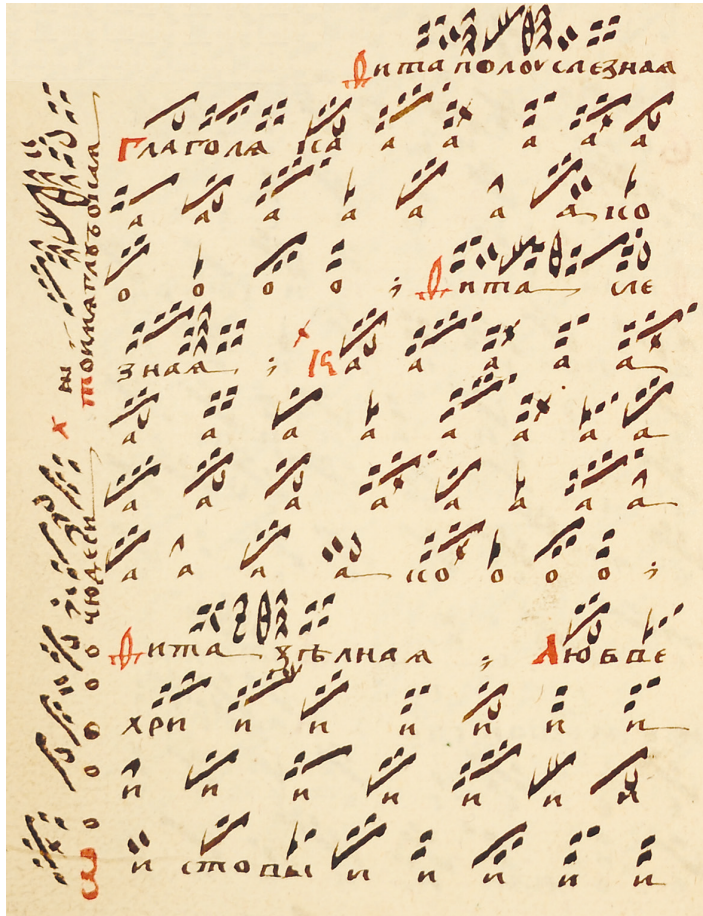 Ѳита полоу слезнаѧ
Глаголѧ ка а а а а а
а а а а а а а ко
о о о о ; Ѳита сле
знаѧ ; Ꙗ а а а а а
а а а а а а а а
а а а а а а а а
а а а а ко о о о ;
Ѳита зѣлнаѧ ; Любве
хри и и и и и и
и и и и и и и
и стопы и и и и и
о о о о о чюдеси